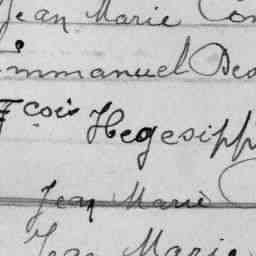 Jean Marie Con
Emmanuel Des
Fçois Hegesipp
Jean Marie
Jean Marie